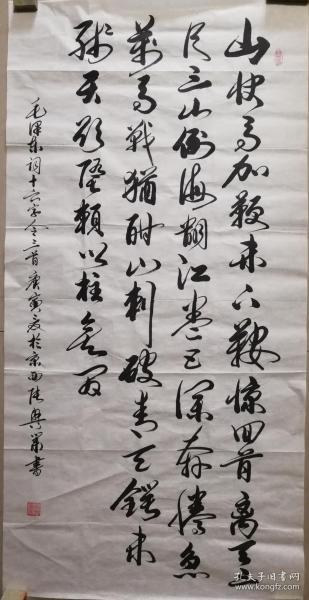 山快马加鞭未下鞍惊回首离天
尺三山倒海翻江卷巨澜奔腾急
萬马戰猶酣山刺破青天鍔未
殘天欲墮賴以柱其间
毛泽东词十六字令三首庚寅夏於京西書
孔夫子旧书网
www.kongfz.com